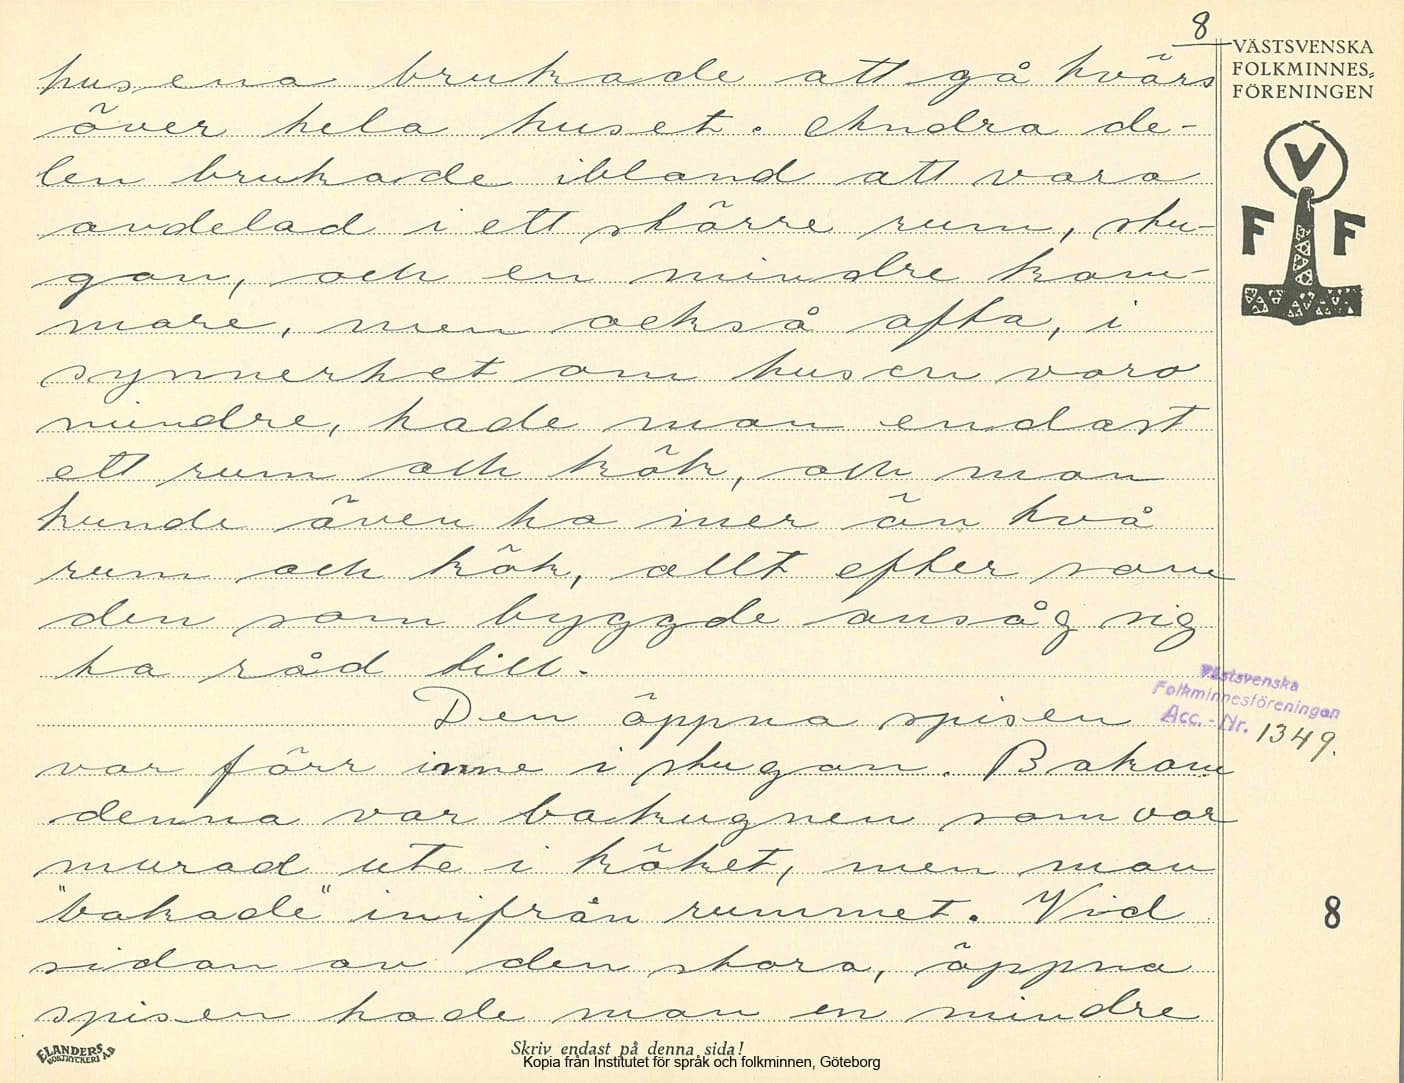 8
VÄSTSVENSKA
FOLKMINNES=
FÖRENINGEN
V
F F
husena brukade att gå tvärs
över hela huset. Andra de-
len brukade ibland att vara
avdelad i ett större rum, stu-
gan, och en mindre kam-
mare, men också ofta, i
synnerhet om husen voro
mindre, hade man endast
ett rum och kök, och man
kunde även ha mer än två
rum och kök, allt efter som
den som byggde ansåg sig
ha råd till.
Den öppna spisen
var förr inne i stugan. Bakom
denna var bakugnen som var
murad ute i köket, men man
"bakade" inifrån rummet. Vid
sidan av den stora, öppna
spisen hade man en mindre
Västsvenska
Folkminnesföreningen
Acc. - Nr. 1349.
8
ELANDERS
BOKTRYCKERI A.B
Skriv endast på denna sida!
Kopia från Institutet för språk och folkminnen, Göteborg